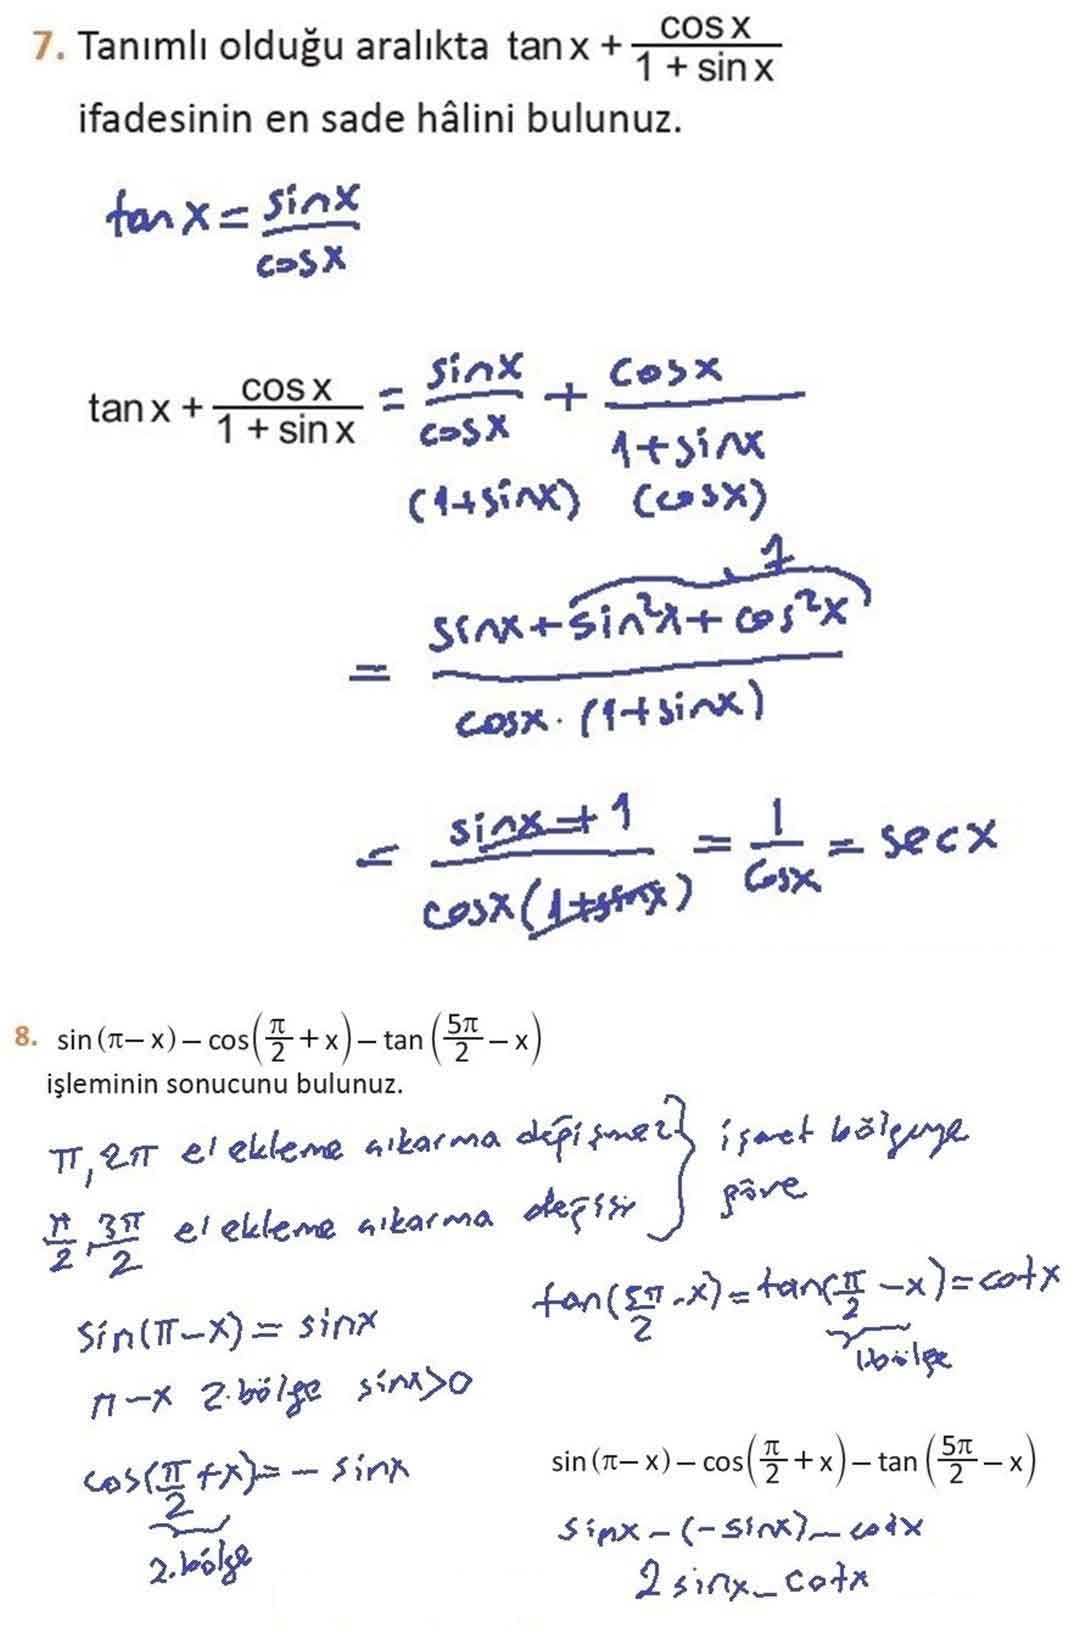 7. Tanımlı olduğu aralıkta tan x + cos x / (1 + sin x)
ifadesinin en sade hâlini bulunuz.
tan x = sinx / cosx
tan x + cos x / (1 + sin x) = sinx / cosx + cosx / (1+sinx)
(1+sinx) (cosx)
1
= (sinx + sin²x + cos²x) / (cosx · (1+sinx))
= (sinx + 1) / (cosx (1+sinx)) = 1 / cosx = secx
8. sin (π – x) – cos(π/2 + x) – tan (5π/2 – x)
işleminin sonucunu bulunuz.
π, 2π el ekleme çıkarma değişmez } işaret bölgeye
π/2, 3π/2 el ekleme çıkarma değişir } göre
tan(5π/2 - x) = tan(π/2 - x) = cotx
1.bölge
sin(π-x) = sinx
π-x 2.bölge sinx>0
cos(π/2 + x) = - sinx
2.bölge
sin (π – x) – cos(π/2 + x) – tan (5π/2 – x)
sinx - (-sinx) - cotx
2 sinx - cotx